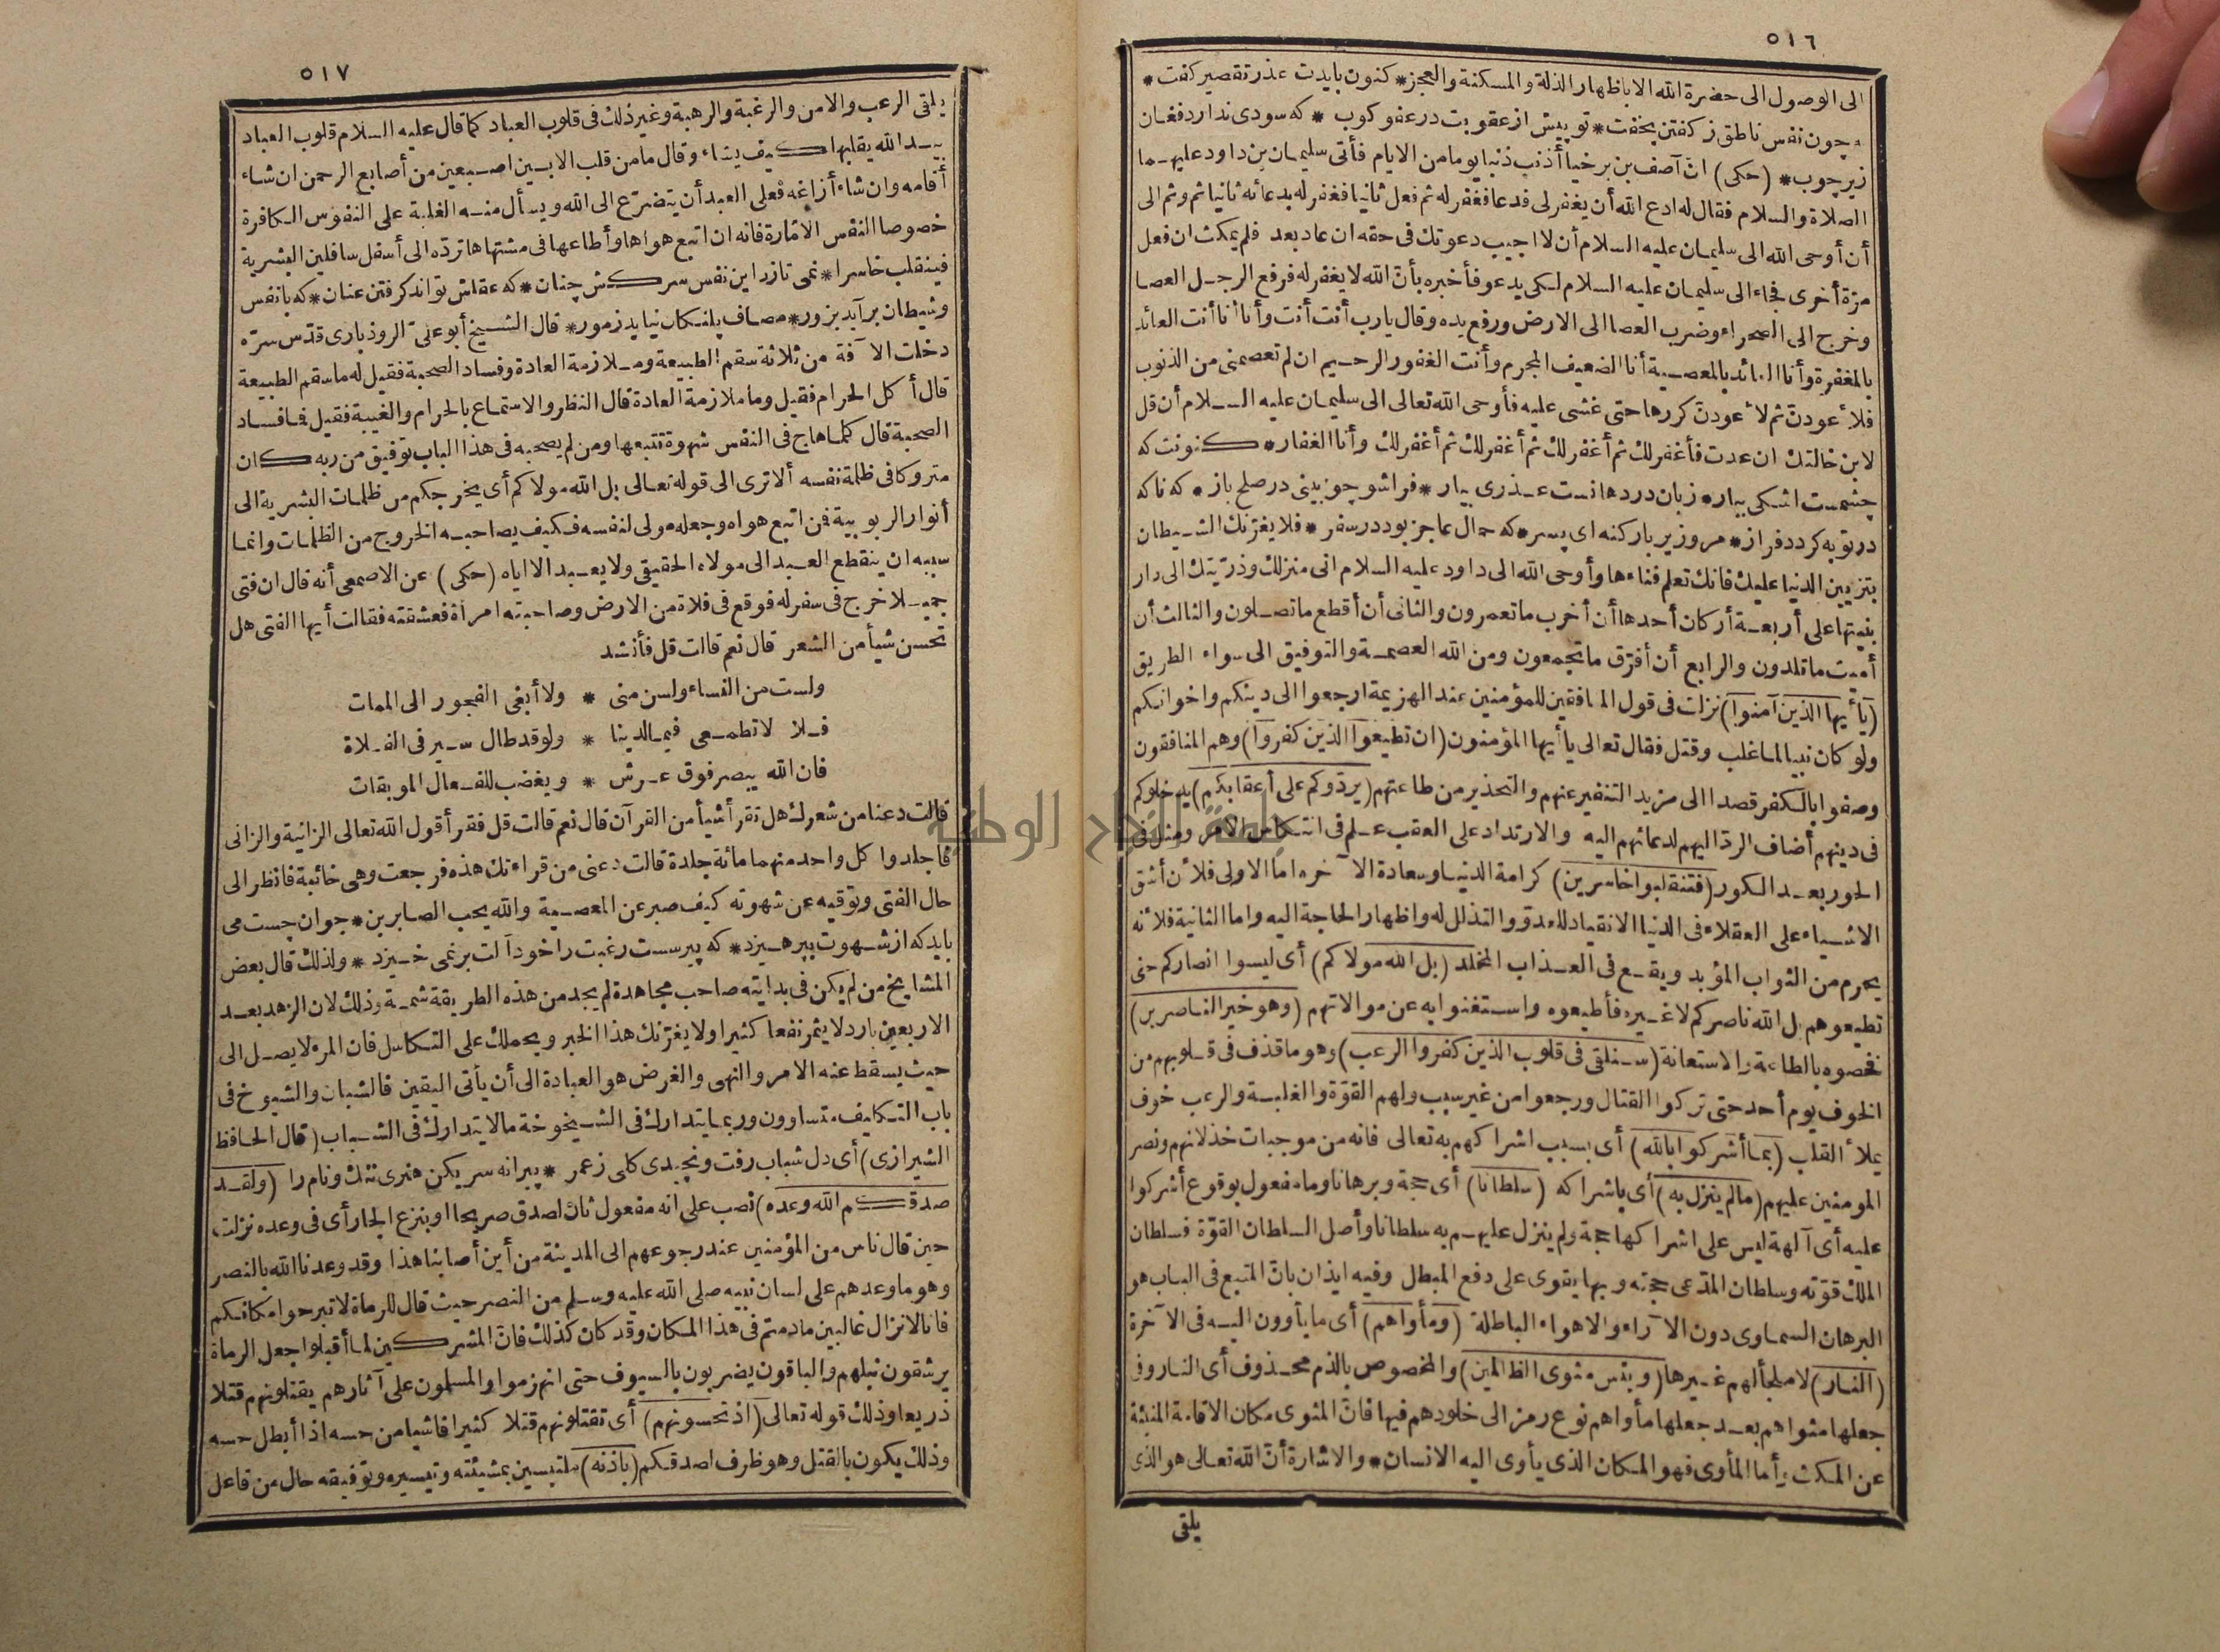 ٥١٦
الى الوصول الى حضرة الله الا باظهار الذلة والمسكنة والعجز * كنون بايدت عذر تقصير كفت *
چون نفس ناطق ز كفتن بخفت * تو پيش از عقوبت در عفو كوب * كه سودى ندارد فغان
زير چوب * (حكى) ان آصف بن برخيا أذنب ذنبا يوما من الايام فأتى سليمان بن داود عليهما
الصلاة والسلام فقال له ادع الله أن يغفر لى فدعا فغفر له ثم فعل ثانيا فغفر له بدعائه ثانيا ثم وثم الى
أن أوحى الله الى سليمان عليه السلام أن لا اجيب دعوتك فى حقه ان عاد بعد فلم يمكث ان فعل
مرّة أخرى فجاء الى سليمان عليه السلام لكى يدعو فأخبره بأنّ الله لا يغفر له فرفع الرجل العصا
وخرج الى الصحراء وضرب العصا الى الارض ورفع يده وقال يا رب أنت أنت وأنا أنا أنت العائد
بالمغفرة وأنا العائد بالمعصية أنا الضعيف المجرم وأنت الغفور الرحيم ان لم تعصمنى من الذنوب
فلأعودنّ ثم لأعودنّ كررها حتى غشى عليه فأوحى الله تعالى الى سليمان عليه السلام أن قل
لابن خالتك ان عدت فأغفر لك ثم أغفر لك ثم أغفر لك ثم أغفر لك وأنا الغفار * كنونت كه
چشمست اشكى ببار * زبان در دهانست عذرى بيار * فراشو چو بينى در صلح باز * كه ناكه
در توبه كردد فراز * مرو زير بار كنه اى پسر * كه حمال عاجز بود در سفر * فلا يغرّنك الشيطان
بتزيين الدنيا عليك فانك تعلم فناءها وأوحى الله الى داود عليه السلام انى منزلك وذرّيتك الى دار
بنيتها على أربعة أركان أحدها أن أخرب ما تعمرون والثانى أن أقطع ما تصلون والثالث أن
أميت ما تلدون والرابع أن أفرّق ما تجمعون ومن الله العصمة والتوفيق الى سواء الطريق
(يا أيها الذين آمنوا) نزلت فى قول المنافقين للمؤمنين عند الهزيمة ارجعوا الى دينكم واخوانكم
ولو كان نبيا لما غلب وقتل فقال تعالى يا أيها المؤمنون (ان تطيعوا الذين كفروا) وهم المنافقون
وصفوا بالكفر قصدا الى مزيد التنفير عنهم والتحذير من طاعتهم (يردّوكم على أعقابكم) يدخلوكم
فى دينهم أضاف الردّ اليهم لدعائهم اليه والارتداد على العقب علم فى انتكاس الامر ومثل فى
الحور بعد الكور (فتنقلبوا خاسرين) كرامة الدنيا وسعادة الآخرة اما الاولى فلأن أشق
الاشياء على العقلاء فى الدنيا الانقياد للعدوّ والتذلل له واظهار الحاجة اليه واما الثانية فلأنه
يحرم من الثواب المؤبد ويقع فى العذاب المخلد (بل الله مولاكم) أى ليسوا انصاركم حتى
تطيعوهم بل الله ناصركم لا غيره فأطيعوه واستغنوا به عن موالاتهم (وهو خير الناصرين)
فخصوه بالطاعة والاستعانة (سنلقى فى قلوب الذين كفروا الرعب) وهو ما قذف فى قلوبهم من
الخوف يوم أحد حتى تركوا القتال ورجعوا من غير سبب ولهم القوّة والغلبة والرعب خوف
يملأ القلب (بما أشركوا بالله) أى بسبب اشراكهم به تعالى فانه من موجبات خذلانهم ونصر
المومنين عليهم (ما لم ينزل به) أى باشراكه (سلطانا) أى حجة وبرهانا وما مفعول بوقوع أشركوا
عليه أى آلهة ليس على اشراكها حجة ولم ينزل عليهم به سلطانا وأصل السلطان القوّة فسلطان
الملك قوّته وسلطان المدّعى حجته وبها يقوى على دفع المبطل وفيه ايذان بانّ المتبع فى الباب هو
البرهان السماوى دون الآراء والاهواء الباطلة (ومأواهم) أى ما يأوون اليه فى الآخرة
(النار) لا ملجأ لهم غيرها (وبئس مثوى الظالمين) والمخصوص بالذم محذوف أى النار وفى
جعلها مثواهم بعد جعلها مأواهم نوع رمز الى خلودهم فيها فانّ المثوى مكان الاقامة المنبئة
عن المكث وأما المأوى فهو المكان الذى يأوى اليه الانسان * والاشارة أنّ الله تعالى هو الذى
يلقى
٥١٧
يلقى الرعب والامن والرغبة والرهبة وغير ذلك فى قلوب العباد كما قال عليه السلام قلوب العباد
بيد الله يقلبها كيف يشاء وقال ما من قلب الا بين اصبعين من أصابع الرحمن ان شاء
أقامه وان شاء أزاغه فعلى العبد أن يتضرّع الى الله ويسأل منه الغلبة على النفوس الكافرة
خصوصا النفس الامّارة فانه ان اتبع هواها وأطاعها فى مشتهاها تردّه الى أسفل سافلين البشرية
فينقلب خاسرا * نمى تازد اين نفس سركش چنان * كه عقلش تواند كرفتن عنان * كه با نفس
وشيطان برآيد بزور * مصاف پلنكان نيايد زمور * قال الشيخ أبو علىّ الروذبارى قدّس سرّه
دخلت الآفة من ثلاثة سقم الطبيعة وملازمة العادة وفساد الصحبة فقيل له ما سقم الطبيعة
قال أكل الحرام فقيل وما ملازمة العادة قال النظر والاستماع بالحرام والغيبة فقيل فما فساد
الصحبة قال كلما هاج فى النفس شهوة تتبعها ومن لم يصحبه فى هذا الباب توفيق من ربه كان
متروكا فى ظلمة نفسه ألا ترى الى قوله تعالى بل الله مولاكم أى يخرجكم من ظلمات البشرية الى
أنوار الربوبية فمن اتبع هواه وجعله مولى لنفسه فكيف يصاحبه الخروج من الظلمات وانما
سببه ان ينقطع العبد الى مولاه الحقيقى ولا يعبد الا اياه (حكى) عن الاصمعى أنه قال ان فتى
جميلا خرج فى سفر له فوقع فى فلاة من الارض وصاحبته امرأة فعشقته فقالت أيها الفتى هل
تحسن شيأ من الشعر قال نعم قالت قل فأنشد
ولست من النساء ولسن منى * ولا أبغى الفجور الى الممات
فلا لا تطمعى فيما لدينا * ولو قد طال سير فى الفلاة
فان الله يبصر فوق عرش * ويغضب للفعال الموبقات
قالت دعنا من شعرك هل تقرأ شيأ من القرآن قال نعم قالت قل فقرأ قول الله تعالى الزانية والزانى
فاجلدوا كل واحد منهما مائة جلدة قالت دعنى من قراءتك هذه فرجعت وهى خائبة فانظر الى
حال الفتى وتوقيه عن شهوته كيف صبر عن المعصية والله يحب الصابرين * جوان چست مى
بايد كه از شهوت بپرهيزد * كه پير سست رغبت را خود آلت بر نمى خيزد * ولذلك قال بعض
المشايخ من لم يكن فى بدايته صاحب مجاهدة لم يجد من هذه الطريقة شمة وذلك لان الزهد بعد
الاربعين بارد لا يثمر نفعا كثيرا ولا يغرّنك هذا الخبر ويحملك على التكاسل فان المرء لا يصل الى
حيث يسقط عنه الامر والنهى والغرض هو العبادة الى أن يأتى اليقين فالشبان والشيوخ فى
باب التكليف متساوون وربما يتدارك فى الشيخوخة ما لا يتدارك فى الشباب (قال الحافظ
الشيرازى) أى دل شباب رفت ونچيدى كلى زعمر * پيرانه سر بكن هنرى ننك ونام را (ولقد
صدقكم الله وعده) نصب على انه مفعول ثان لصدق صريحا او بنزع الجار أى فى وعده نزلت
حين قال ناس من المؤمنين عند رجوعهم الى المدينة من أين أصابنا هذا وقد وعدنا الله بالنصر
وهو ما وعدهم على لسان نبيه صلى الله عليه وسلم من النصر حيث قال للرماة لا تبرحوا مكانكم
فانا لا نزال غالبين ما دمتم فى هذا المكان وقد كان كذلك فانّ المشركين لما أقبلوا جعل الرماة
يرشقون نبلهم والباقون يضربون بالسيوف حتى انهزموا والمسلمون على آثارهم يقتلونهم قتلا
ذريعا وذلك قوله تعالى (اذ تحسونهم) أى تقتلونهم قتلا كثيرا فاشيا من حسه اذا أبطل حسه
وذلك يكون بالقتل وهو ظرف لصدقكم (باذنه) ملتبسين بمشيئته وتيسيره وتوفيقه حال من فاعل
جامعة النجاح الوطنية